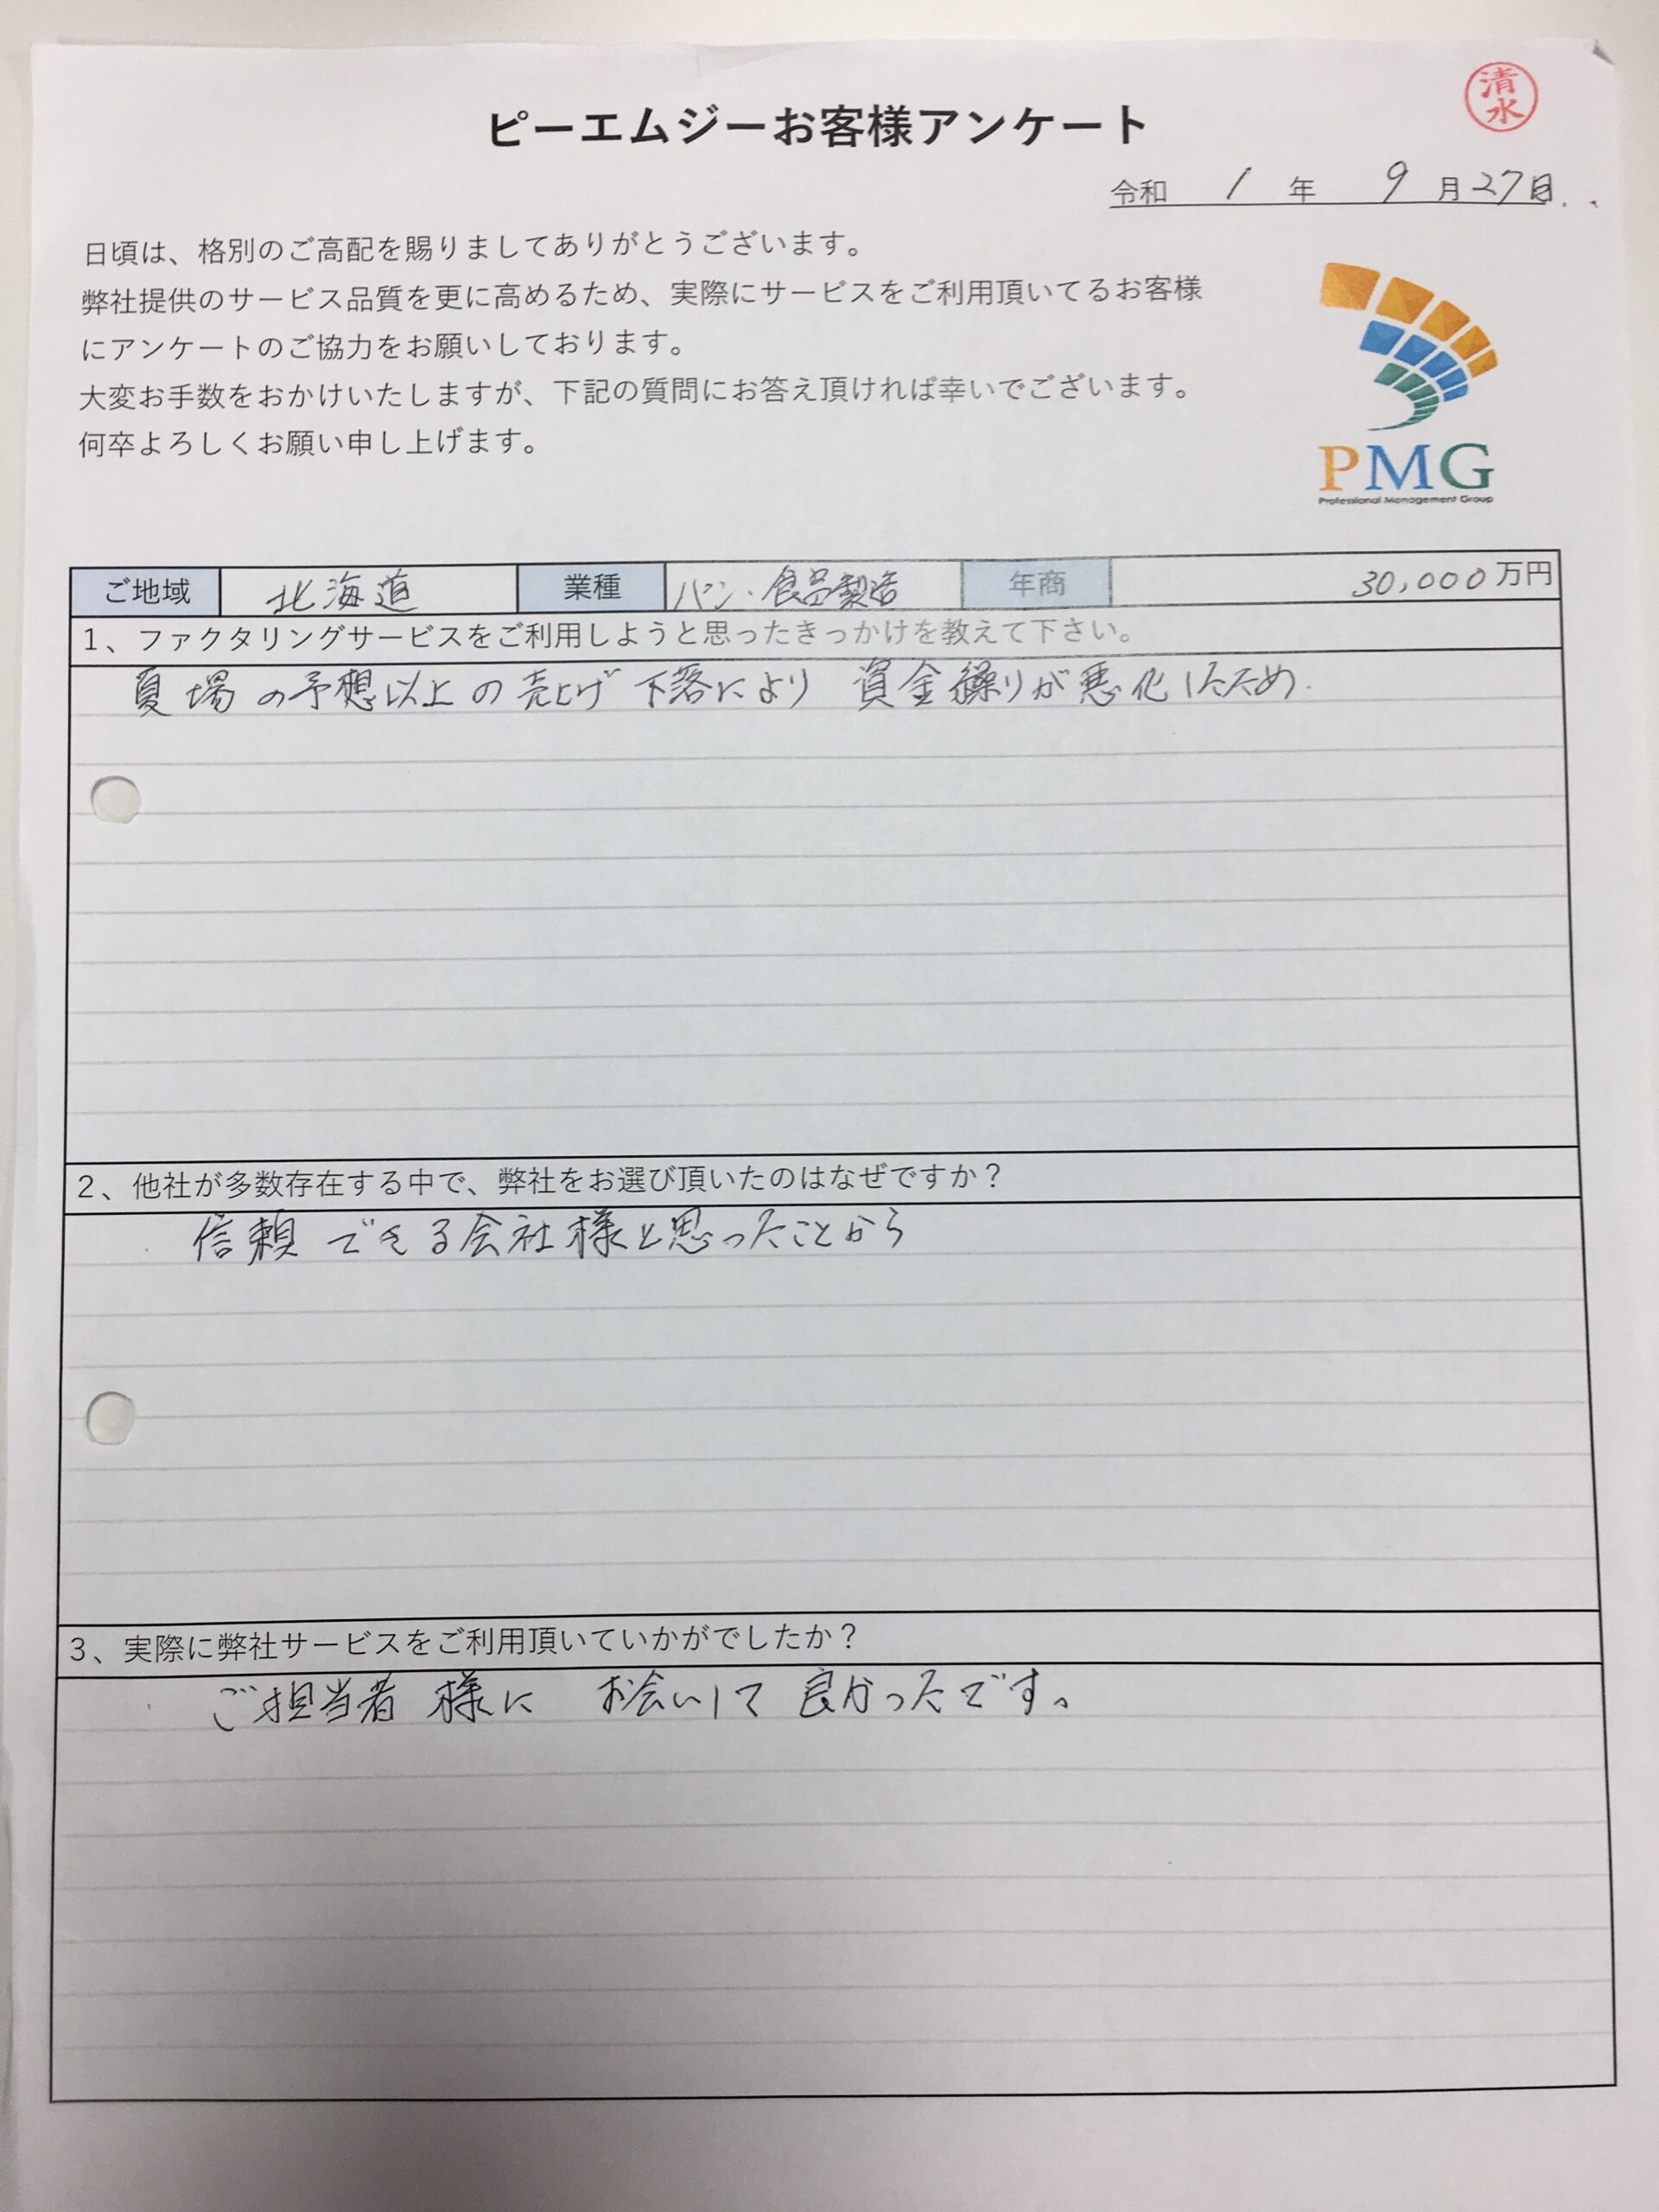 清水
ピーエムジーお客様アンケート
令和 1 年 9 月 27 日
日頃は、格別のご高配を賜りましてありがとうございます。
弊社提供のサービス品質を更に高めるため、実際にサービスをご利用頂いてるお客様
にアンケートのご協力をお願いしております。
大変お手数をおかけいたしますが、下記の質問にお答え頂ければ幸いでございます。
何卒よろしくお願い申し上げます。
PMG
Professional Management Group
ご地域 北海道 業種 パン・食品製造 年商 30,000 万円
1、ファクタリングサービスをご利用しようと思ったきっかけを教えて下さい。
夏場の予想以上の売上げ下落により 資金繰りが悪化したため.
2、他社が多数存在する中で、弊社をお選び頂いたのはなぜですか？
信頼できる会社様と思ったことから
3、実際に弊社サービスをご利用頂いていかがでしたか？
ご担当者様に お会いして 良かったです。